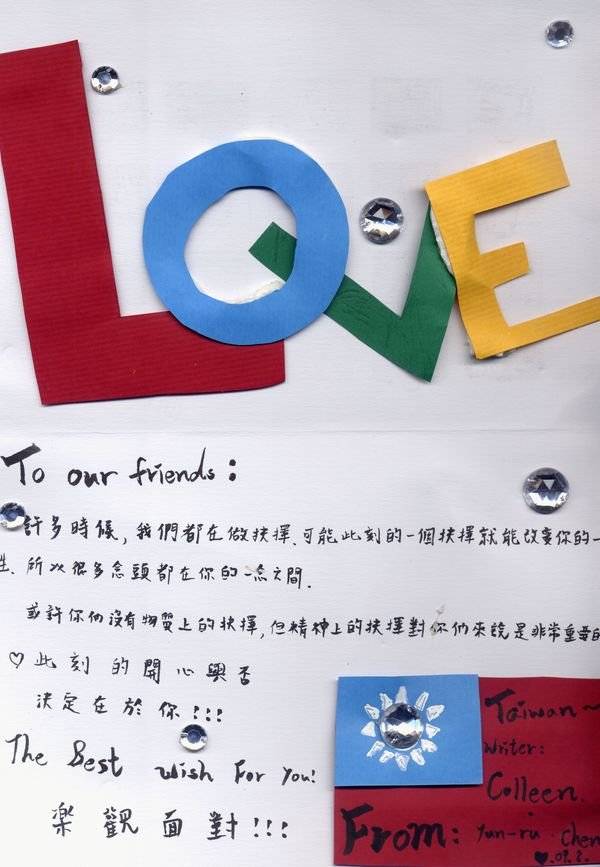 LOVE
To our friends:
許多時候, 我們都在做抉擇. 可能此刻的一個抉擇就能改變你的一
生. 所以很多念頭都在你的一念之間.
或許你們沒有物質上的抉擇, 但精神上的抉擇對你們來說是非常重要的
♡此刻的開心與否
決定在於你!!!
The Best wish For You!
樂觀面對!!!
Taiwan~
Writer:
Colleen.
From: Yun-ru. Chen
♥.09.2.